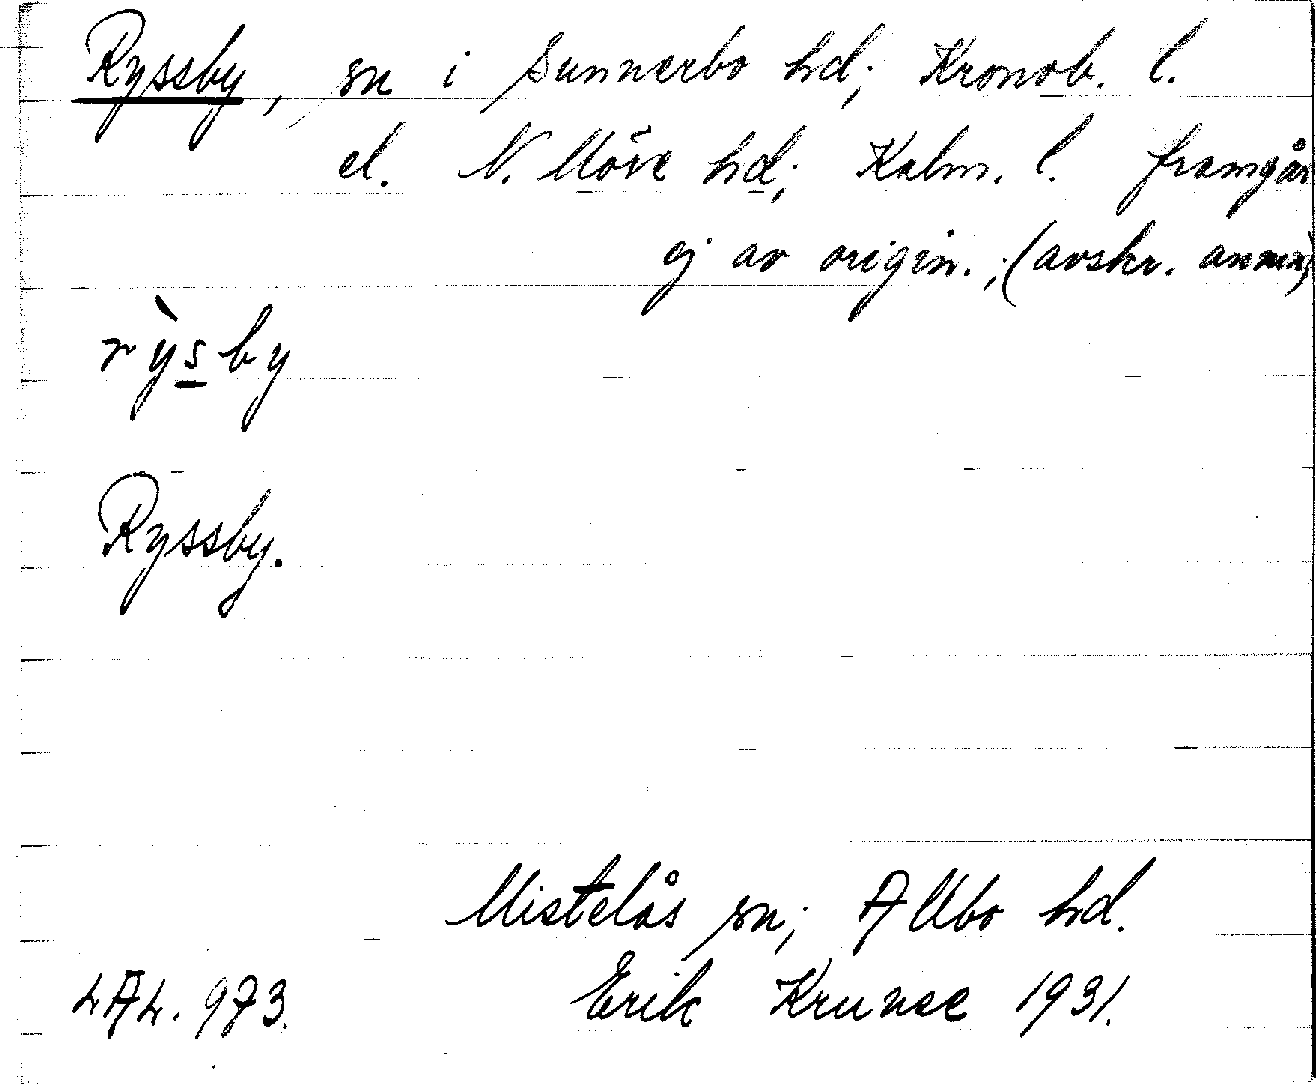 Ryssby, sn i Sunnerbo hd; Kronob. l.
el. N. Möre hd; Kalm. l. framgår
ej av origin.; (avskr. anm.)
rỳsby
Ryssby.
Mistelås sn; Allbo hd.
LAL. 973. Erik Kruuse 1931.